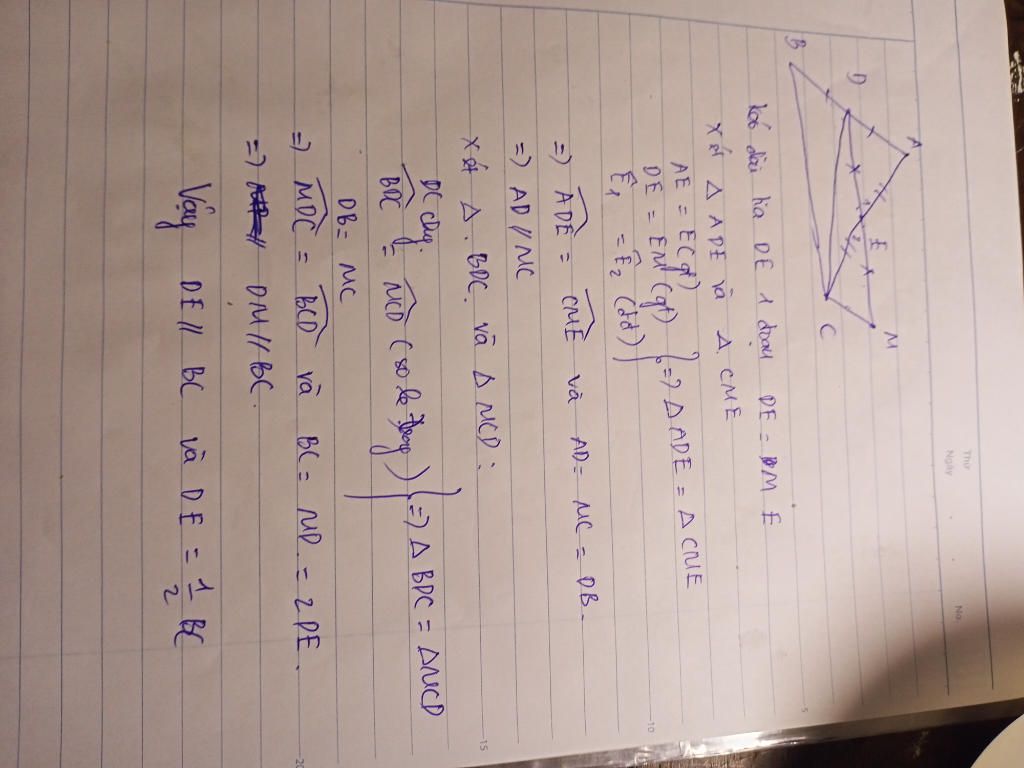 Thứ
Ngày
No.
A
D
E
M
B
C
1
2
kéo dài tia DE 1 đoạn DE = M E
xét Δ ADE và Δ CME
AE = EC (gt)
DE = EM (gt) } => Δ ADE = Δ CME
Ê1 = Ê2 (đđ)
=> ADE = CME và AD = MC = DB.
=> AD // MC
xét Δ. BDC. và Δ MCD:
DC chg.
BDC = MCD (so le trong) } => Δ BDC = ΔMCD
DB = MC
=> MDC = BCD và BC = MD = 2 DE.
=> DM // BC.
Vậy DE // BC và DE = 1/2 BC
5
10
15
20